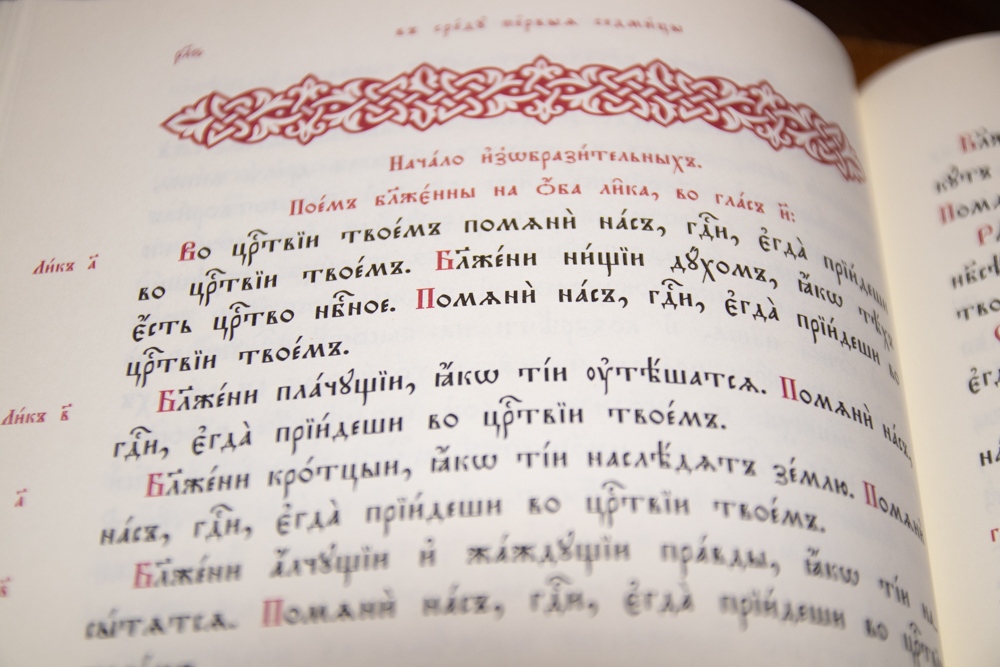 въ среду̀ пе́рвыѧ седми́цы
Нача́ло и҆з̾ѡбрази́тельныхъ.
Пое́мъ бл҃жє́нны на ѻ҆́ба ли̑ка, во гла́съ и҃:
Ли́къ а҃
Во цр҇твїи твое́мъ помѧнѝ на́съ, гдⷭ҇и, є҆гда̀ прїи́деши
во цр҇твїи твое́мъ. Бл҃же́ни ни́щїи дꙋ́хомъ, ꙗ҆́кѡ тѣ́хъ
є҆́сть цр҇тво нбⷭ҇ное. Помѧнѝ на́съ, гдⷭ҇и, є҆гда̀ прїи́деши во
цр҇твїи твое́мъ.
Ли́къ в҃
Бл҃же́ни пла́чꙋщїи, ꙗ҆́кѡ ті́и ᲂу҆тѣ́шатсѧ. Помѧнѝ на́съ,
гдⷭ҇и, є҆гда̀ прїи́деши во цр҇твїи твое́мъ.
а҃
Бл҃же́ни кро́тцыи, ꙗ҆́кѡ ті́и наслѣ́дѧтъ зе́млю. Помѧнѝ
на́съ, гдⷭ҇и, є҆гда̀ прїи́деши во цр҇твїи твое́мъ.
в҃
Бл҃же́ни а҆́лчꙋщїи и҆ жа́ждꙋщїи пра́вды, ꙗ҆́кѡ ті́и
сы́тѧтсѧ. Помѧнѝ на́съ, гдⷭ҇и, є҆гда̀ прїи́деши во